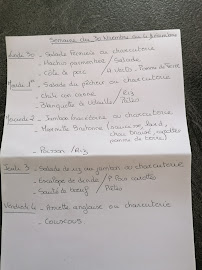 Semaine du 30 Novembre au 4 Décembre
Lundi 30 - Salade Piémontaise ou charcuterie
- Hachis parmentier / Salade
- Côte de porc / H. Verts - Pommes de Terre
Mardi 1er - Salade du pêcheur ou charcuterie
- Chili con carne / riz
- Blanquette de Volaille / Pâtes
Mercredi 2 - Jambon Macédoine ou charcuterie
- Marmite Bretonne (saucisse, lard, chou
carottes
pomme de terre)
- Poisson / riz
Jeudi 3 - Salade de riz au jambon ou charcuterie
- Escalope de dinde / P. Pois carottes
- Sauté de boeuf / Pâtes
Vendredi 4 - Assiette anglaise ou charcuterie
- Couscous